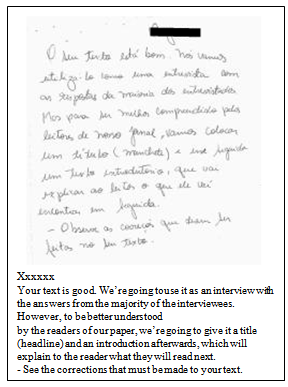 O seu texto está bom. Nós vamos
utilizá-lo como uma entrevista com
as respostas da maioria dos entrevistados
Mas para ser melhor compreendido pelos
leitores de nosso jornal, vamos colocar
um título (manchete) e em seguida
um texto introdutório, que vai
explicar ao leitor o que ele vai
encontrar em seguida.
- Observe as correções que devem ser
feitas no seu texto.
Xxxxxx
Your text is good. We're going to use it as an interview with
the answers from the majority of the interviewees.
However, to be better understood
by the readers of our paper, we're going to give it a title
(headline) and an introduction afterwards, which will
explain to the reader what they will read next.
- See the corrections that must be made to your text.